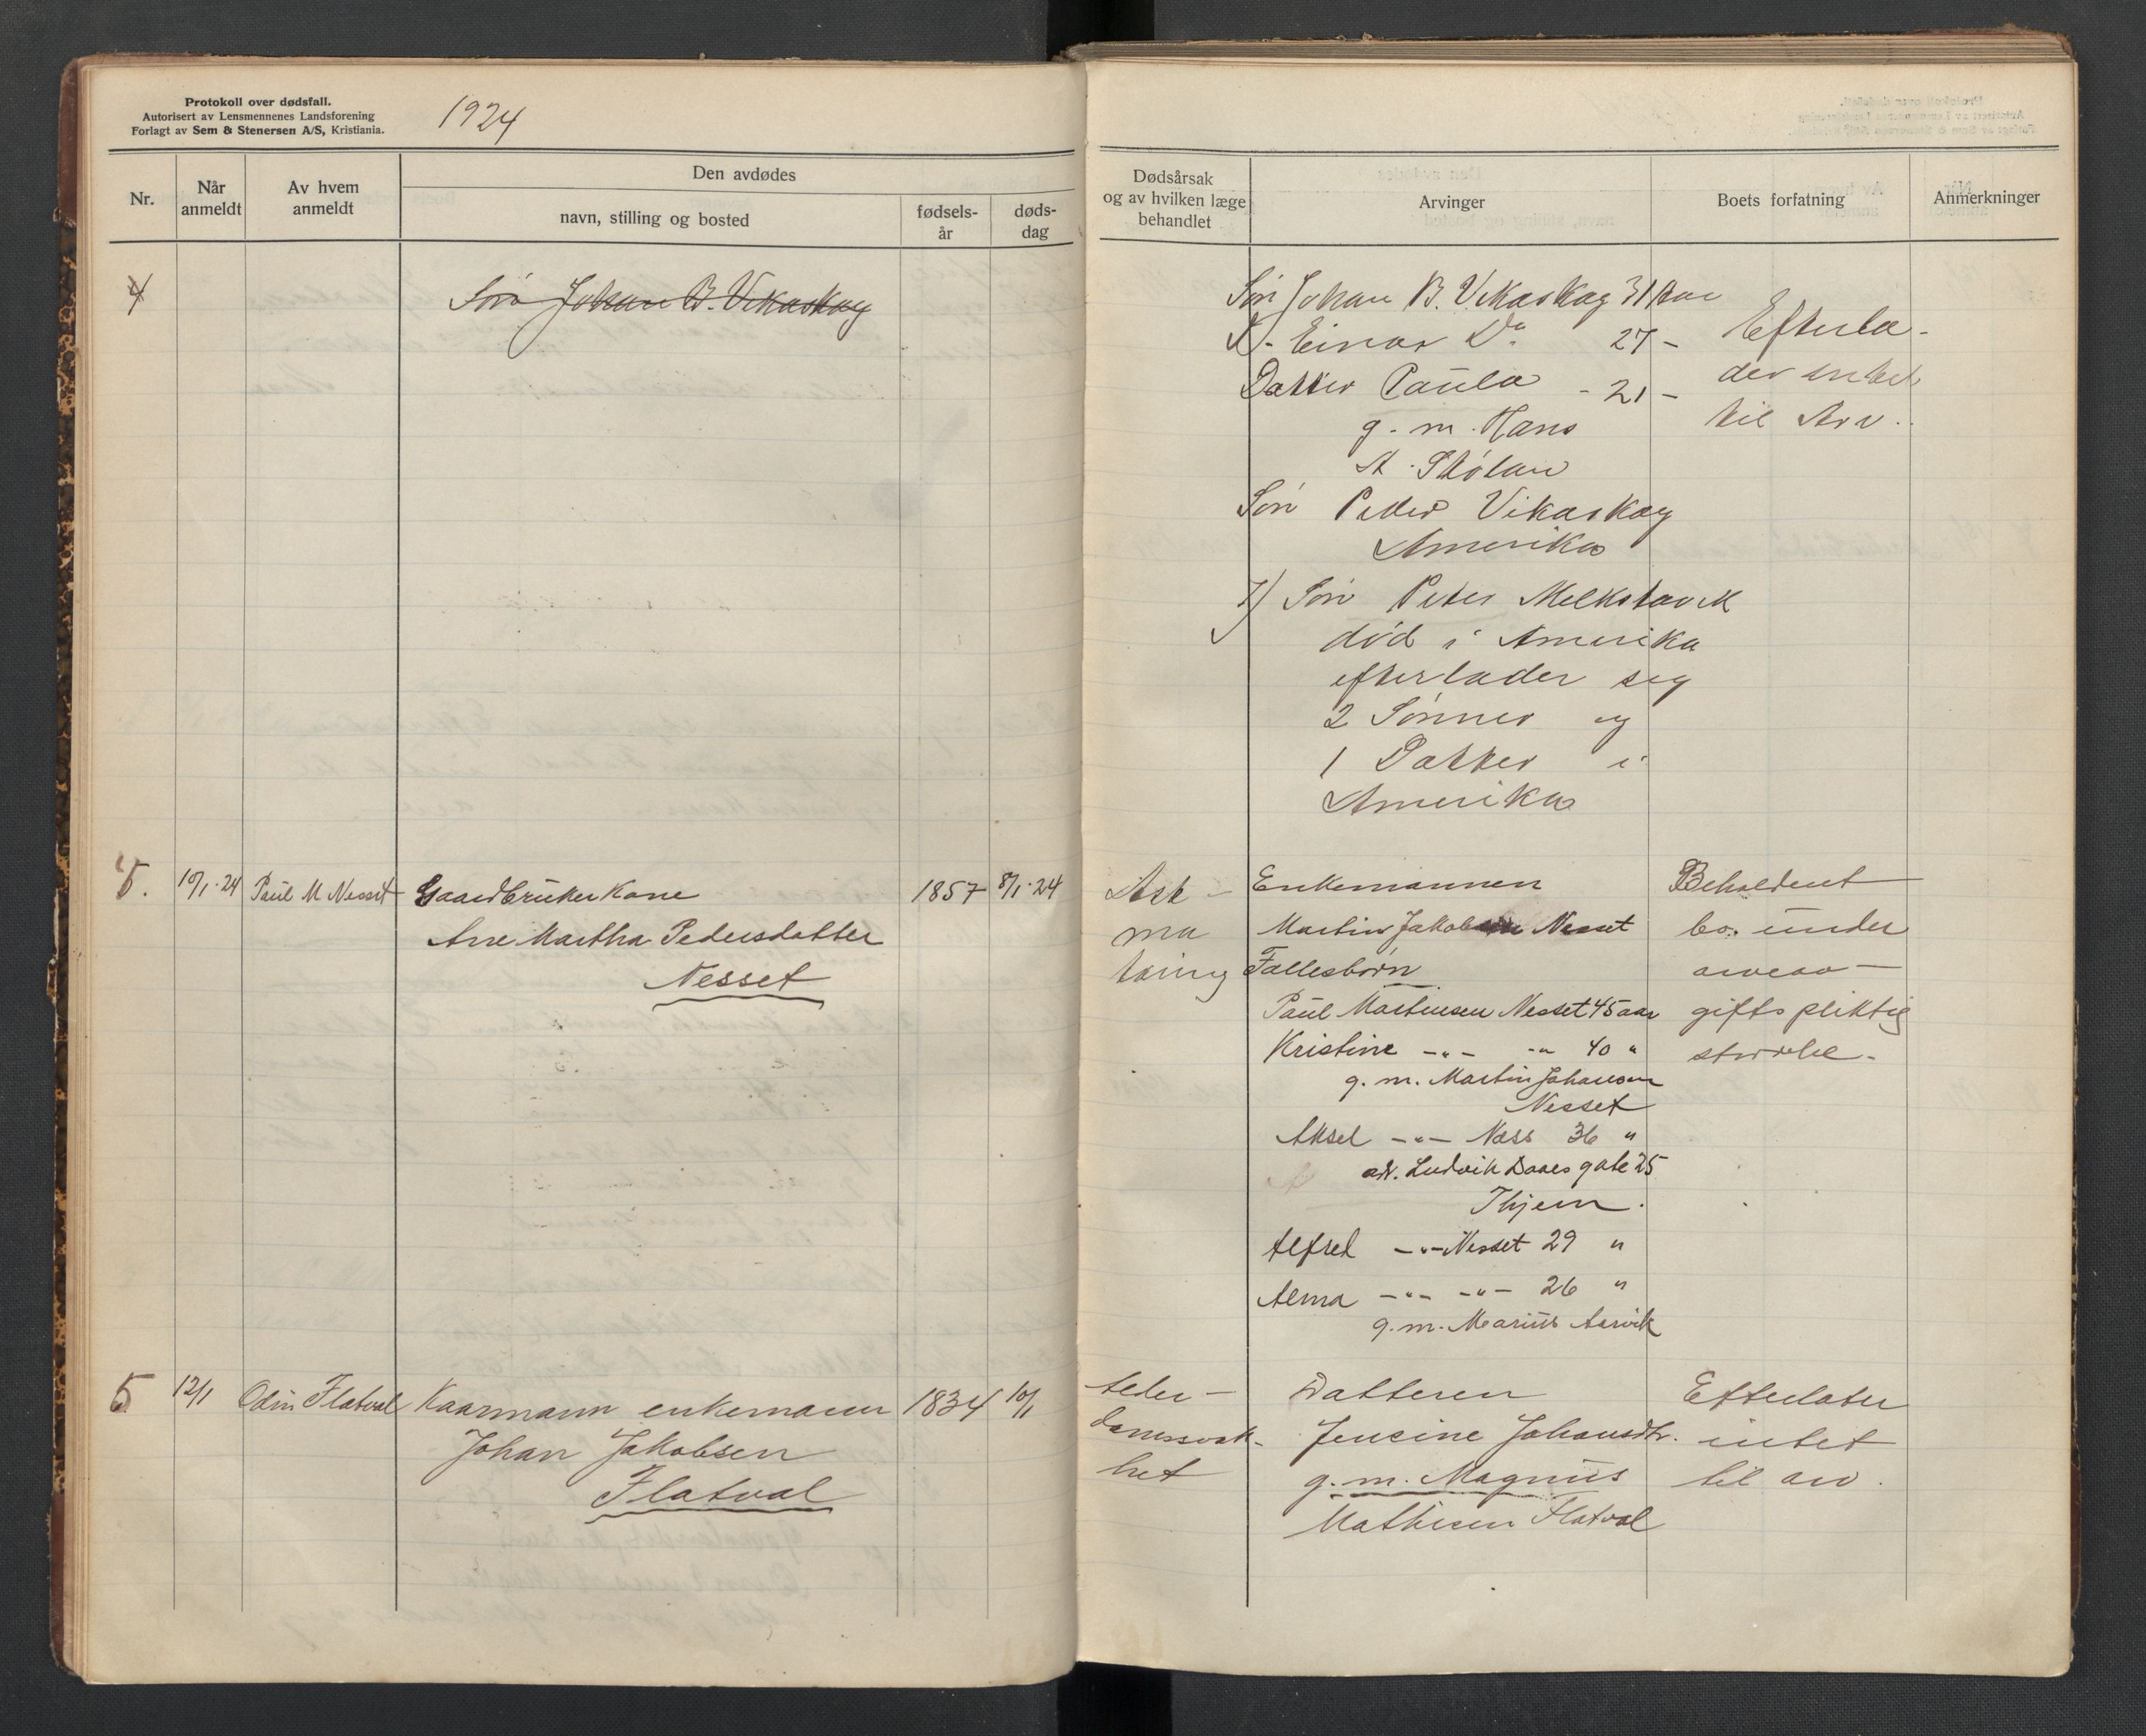 Protokoll over dødsfall.
Autorisert av Lensmennenes Landsforening
Forlagt av Sem & Stenersen A/S, Kristiania.
1924
Nr.
Når anmeldt
Av hvem anmeldt
Den avdødes
navn, stilling og bosted
fødsels-år
døds-dag
Dødsårsak
og av hvilken læge
behandlet
Arvinger
Boets forfatning
Anmerkninger
4
Søn Johan B. Vikaskag
Søn Johan B. Vikaskag 31 Aar
D- Einar Do 27 -
Datter Paula - 21 -
g. m. Hans
A. Stølan
Søn Peder Vikaskag
Amerika
7) Søn Peter Melkstavik
død i Amerika
efterlader seg
2 Sønner og
1 Datter i
Amerika
Efterla-
der intet
til Arv.
10/1-24 Paul M Nesset Gaardbruker Kone 1857 8/1-24
Ane Martha Pedersdatter
Nesset
Ast-
ma
tæring
Enkemannen
Martin Jakobsen Nesset
Fællesbørn
Paul Martinsen Nesset 45 aar
Kristine -"- -" 40 "
g. m. Martin Johansen
Nesset
Aksel -"- Næss 36 "
adr. Ludvik Daaes gate 25
Thjem.
Alfred -"- Nesset 29 "
Alma -"- -"- 26 "
g. m. Marius Aarvik
Beholdent
bo. under
arveav-
gifts pliktig
størrelse.
5 12/1 Odin Flatval Kaarmann enkemann 1834 10/1
Johan Jakobsen
Flatval
Alder-
domssvak-
het
Datteren
Jensine Johansdtr.
g. m. Magnus
Mathisen Flatval
Efterlater
intet
til arv.